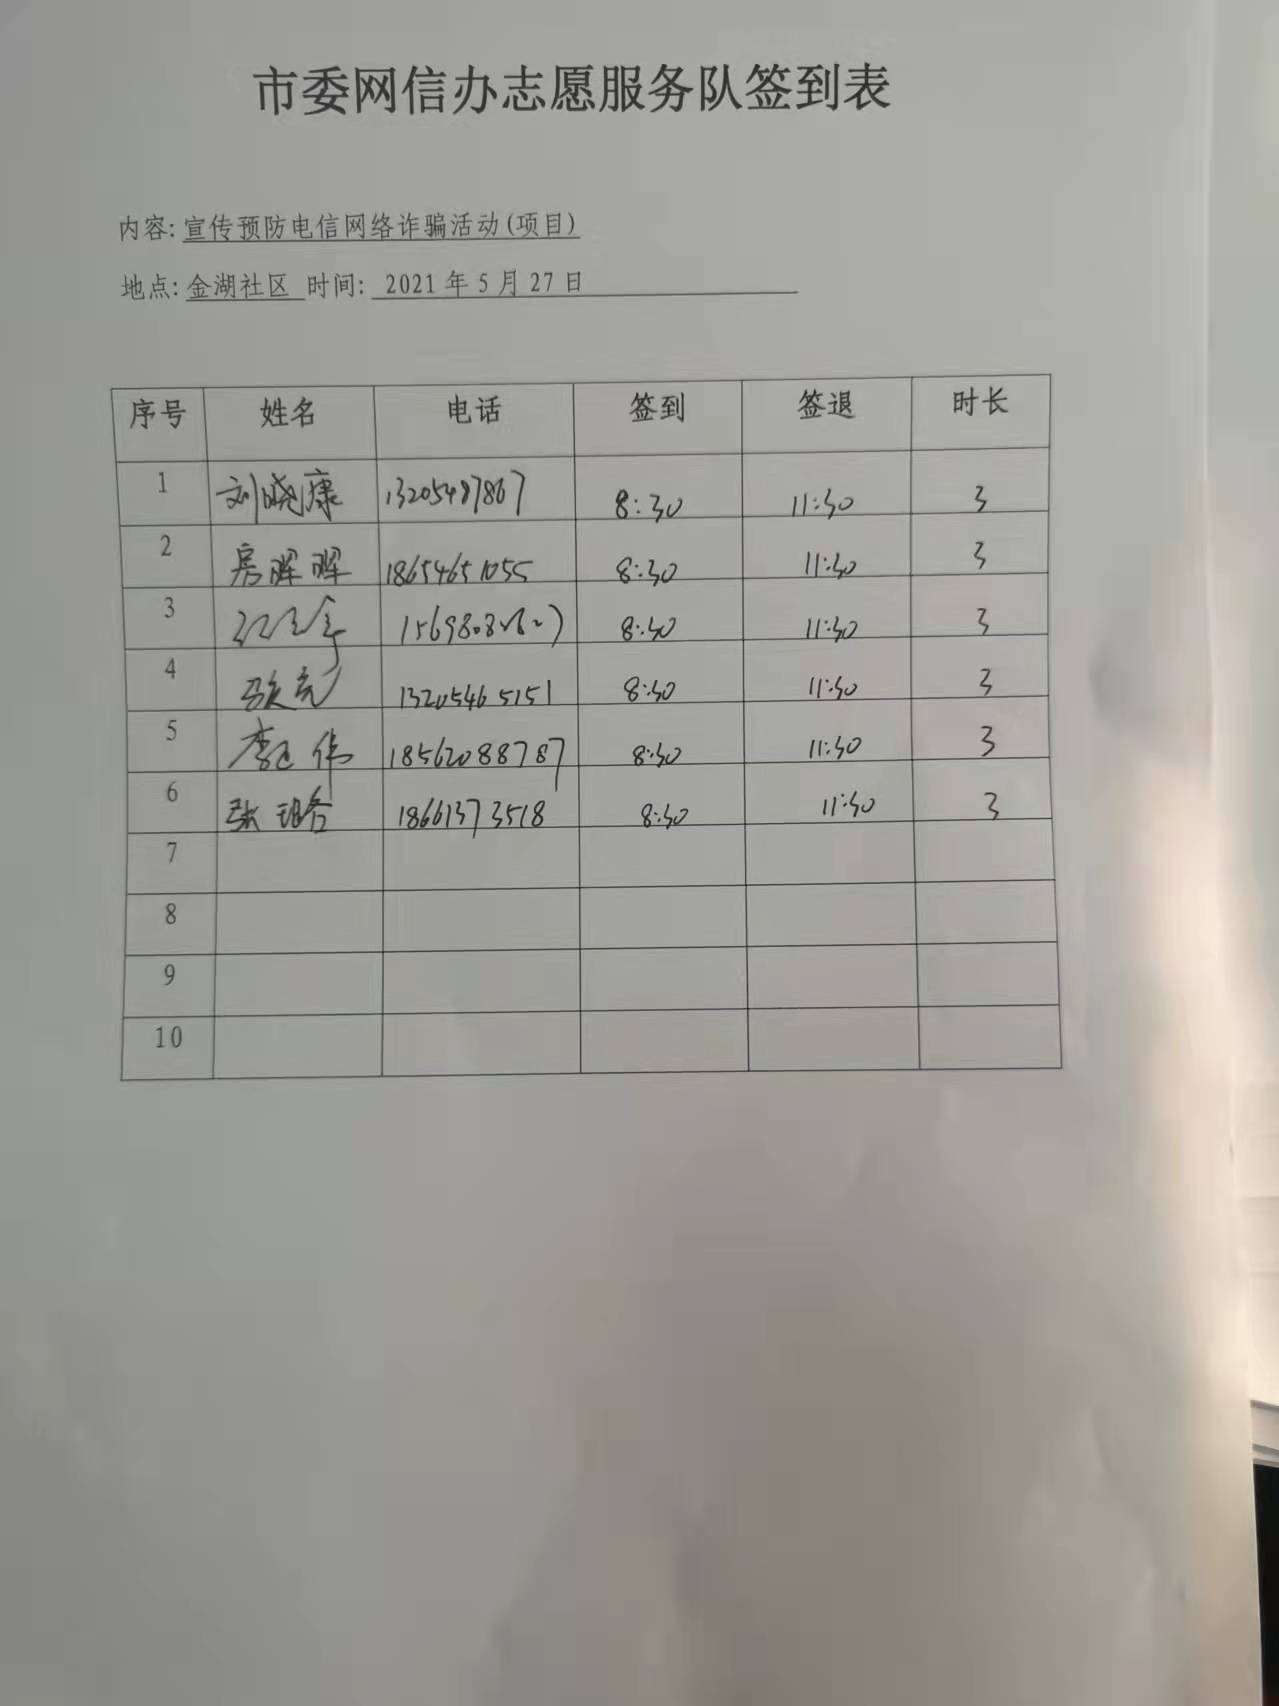 市委网信办志愿服务队签到表
内容: 宣传预防电信网络诈骗活动(项目)
地点: 金湖社区 时间: 2021 年 5 月 27 日
序号 姓名 电话 签到 签退 时长
1 刘晓康 8:30 11:30 3
2 房晖晖 18654651055 8:30 11:30 3
3 8:30 11:30 3
4 13205465151 8:30 11:30 3
5 18562088787 8:30 11:30 3
6 18661373518 8:30 11:30 3
7
8
9
10